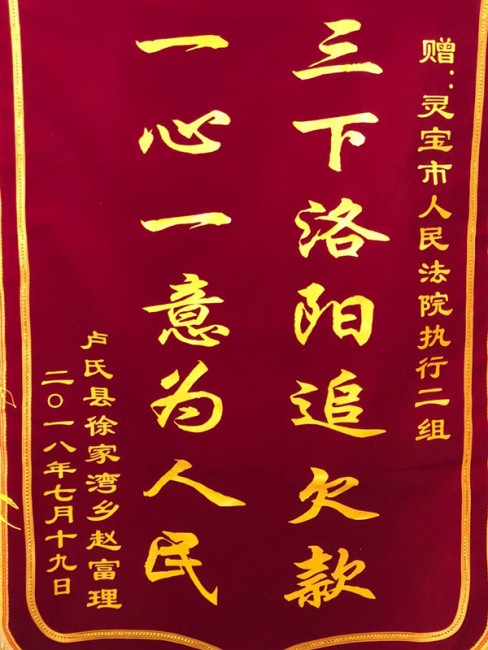 赠：灵宝市人民法院执行二组
三下洛阳追欠款
一心一意为人民
卢氏县徐家湾乡赵富理
二〇一八年七月十九日